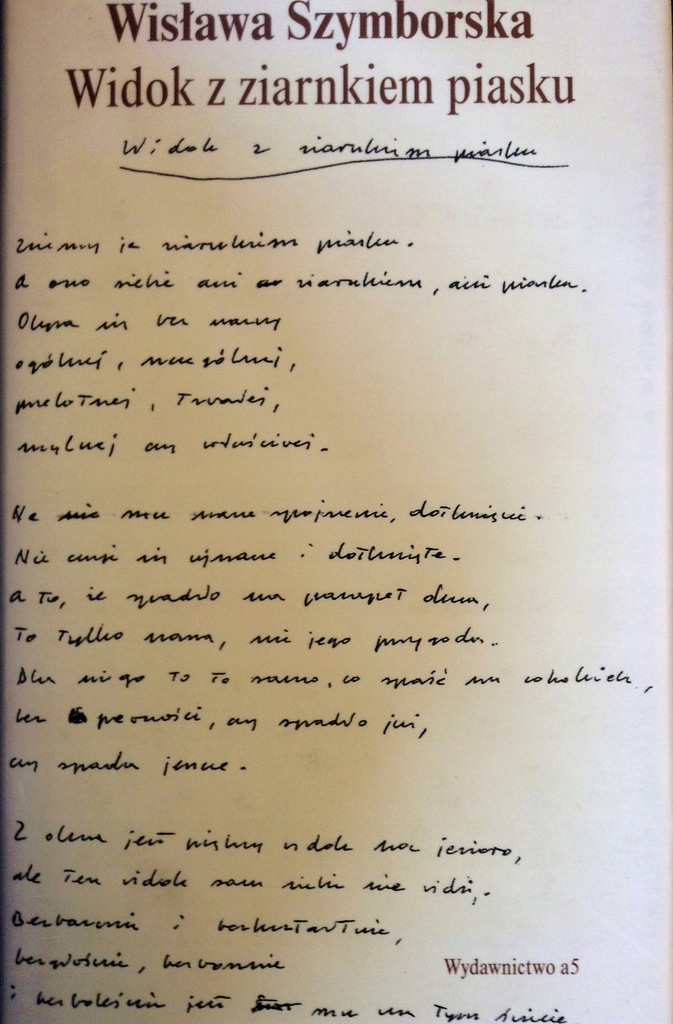 Wisława Szymborska
Widok z ziarnkiem piasku
Widok z ziarnkiem piasku
Zwiemy je ziarnkiem piasku.
A ono siebie ani ziarnkiem, ani piasku.
Obywa się bez nazwy
ogólnej, szczególnej,
przelotnej, trwałej,
mylnej czy właściwej.
Na nic mu nasze spojrzenie, dotknięcie.
Nie czuje się ujrzane i dotknięte.
A to, że spadło na parapet okna,
to tylko nasza, nie jego przygoda.
Dla niego to to samo, co spaść na cokolwiek,
bez pewności, czy spadło już,
czy spada jeszcze.
Z okna jest piękny widok na jezioro,
ale ten widok sam siebie nie widzi.
Bezbarwnie i bezkształtnie,
bezgłośnie, bezwonnie
Wydawnictwo a5
i bezboleśnie jest mu na tym świecie